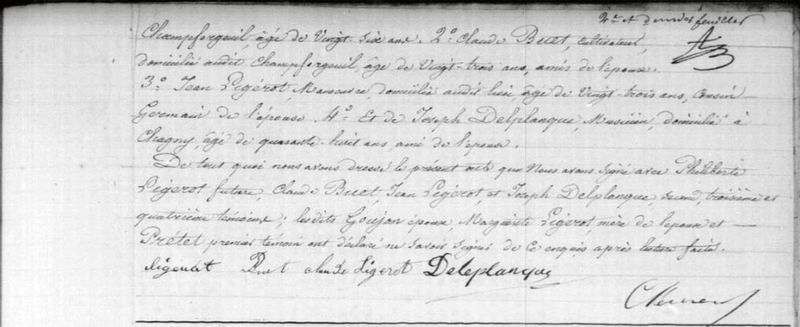 2e et dernier feuillet
Champforgeuil, âgé de Vingt six ans. 2o Claude Buet, cultivateur,
domicilié audit Champforgeuil, âgé de Vingt-trois ans, amis de l'époux.
3o Jean Ligérot, Manoeuvre domicilié audit lieu, âgé de Vingt-trois ans, cousin
Germain de l'épouse. 4o Et de Joseph Delplanque, Musicien, domicilié à
Chagny, âgé de quarante huit ans, ami de l'époux.
De tout quoi nous avons dressé le présent acte que Nous avons signé avec Philiberte
Ligerot future, Claude Buet, Jean Ligérot, et Joseph Delplanque second, troisième et
quatrième témoins; les dits Goujon époux, Marguerite Ligerot mère de l'epouse et
Prétet premier témoin ont déclaré ne savoir signer de ce enquis après lecture faite.
Buet claude Ligerot Deleplanque